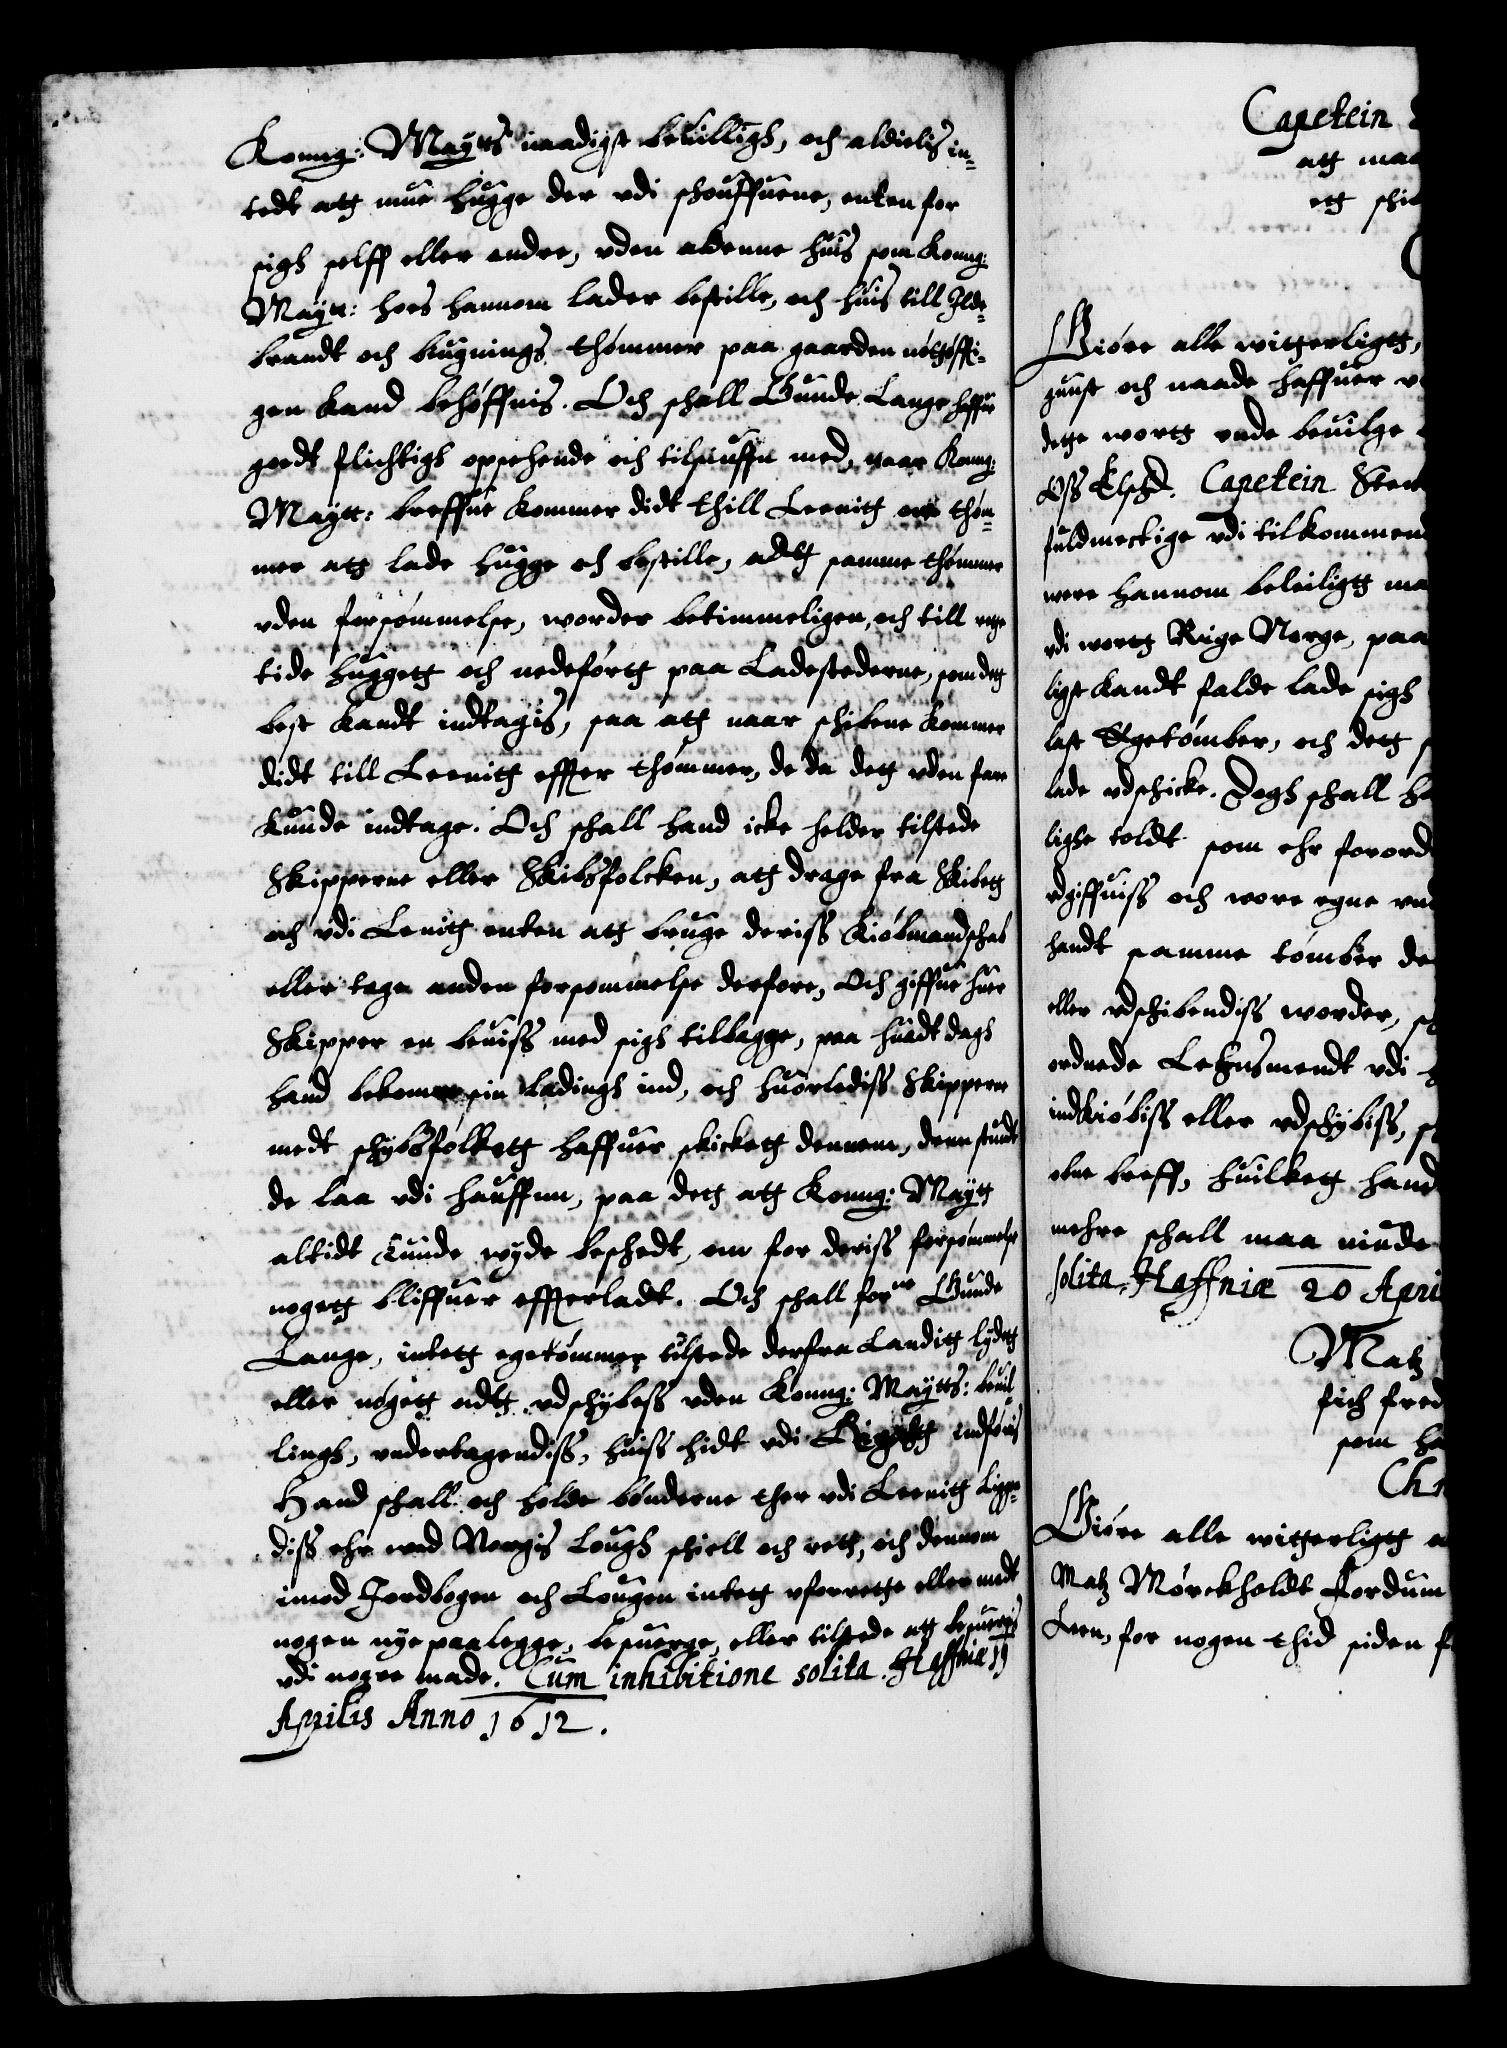 Konng: Maytts naadigst beuilligh, och aldielis in-
tedt att mue hugge der vdi schouffuene, enten for
sigh selff eller andre, vden alenne huis som Konng:
Maytt: hoes hannom lader bestille, och huis till Ilde-
brandt och bugnings thømmer paa gaarden nøttøffti-
gen kand behøffuis. Och schall Gunde Lange haffue
goedt flichtigh opsehende och tilsuffn med, naar Konng:
Maytt: breffue kommer didt thill Leenitt om thøm-
mer att lade hugge och bestille, adtt samme thømmer
vden forsømmelse, worder betimmeligen, och till rette
tide huggett och nedeførtt paa Ladestederne, som dett
best kandt indtagis, saa att naar schibene kommer
didt till Leenitt effter thømmer, de da dett vden fare
kunde indtage. Och schall hand icke helder tilstede
Skipperne eller Skibsfolcken, att drage fra Skibett
och vdi Lenitt enten att bruge deriss kiøbmandschab
eller tage anden forsommelse derfore, Och giffue huer
Skipper en beuiss med sigh tilbagge, paa huadt dagh
hand bekommer sin ladingh ind, och huorlediss Skipperne
medt schybsfolkett haffuer skickett dennem, den stundt
de laa vdi hauffnn, paa dett att Konng: Maytt
altidt kunde wyde beschedt, om for deriss forsømmelse
nogett bliffuer effterladt. Och schall forne Gunde
Lange, intett egetømmer tilstede derfra Landitt lydett
eller nogett adtt vdschybess vden Konng: Maytts: beuil
lingh, vndertagendiss, huiss hidt vdi Rigett indføris
Hand schall och holde bønderne ther vdi Leenitt ligge-
diss ehr wed Norgis Lough schiell och rett, och dennom
imod Jordbogen och Lougen intett vforrette eller medt
nogen nye paalegge, besuerge, eller tilstede att besuergis
vdi nogre made. Cum inhibitione solita. Haffniæ 19
Aprilis Anno 1612.

Capetein
att maa
ett schi
Giøre alle witterligtt,
gunst och naade haffuer
dette wortt vnde beuilge
Oss Elschel. Capetein Sten
fuldmectige vdi tilkommend
were hannom beleiligtt ma
vdi wortt Rige Norge, paa
ligst kandt falde lade sigh
last Egetømber, och dett
lade vdschicke. Dogh schall ha
lighe toldt som ehr forord
vdgiffuiss och wore egne
handt samme tømber de
eller vdschibendiss worder,
ordnede Lehnsmendt vdi
indkiøbiss eller vdschybiss,
obne breff, huilkett hand
mehre schall maa niude
solita. Haffniæ 20 Apri
Matz
fich fred
som ha
Ch
Giøre alle witterligtt
Matz Mørckholdt fordum
Leen, for nogen thid siden